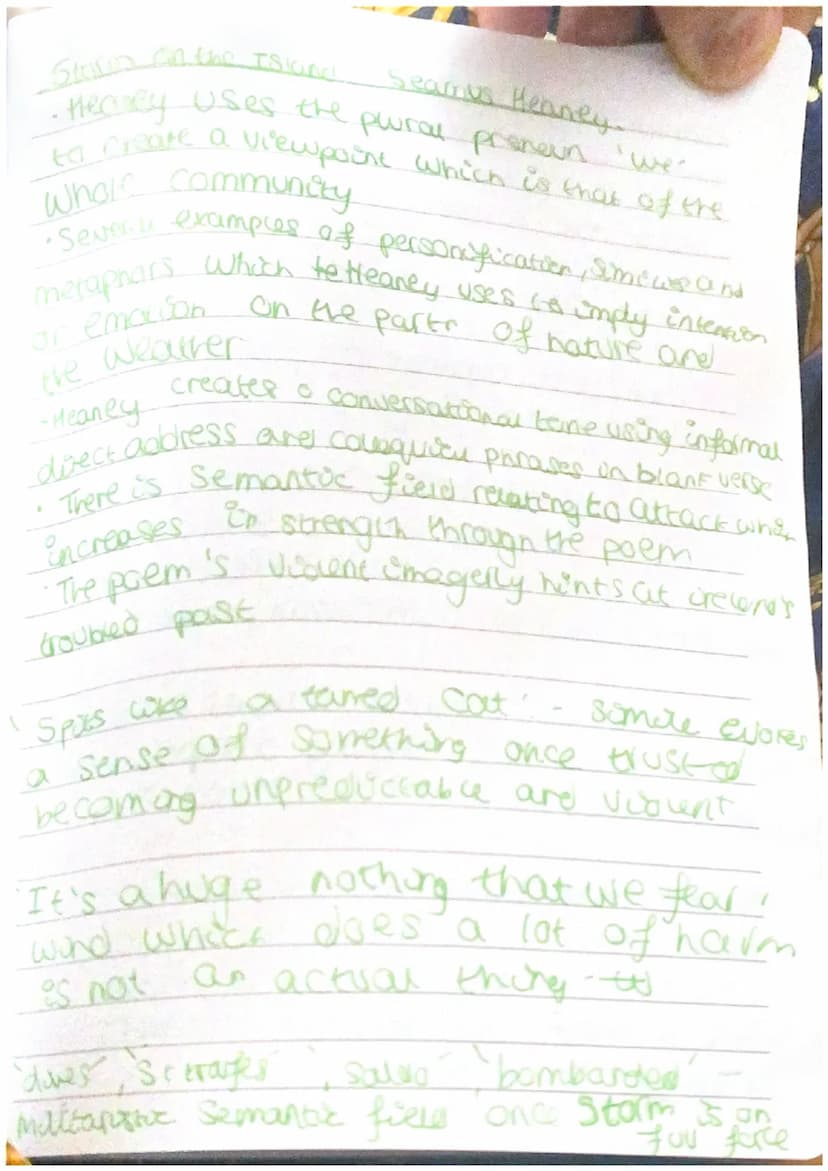 Storm on the Island Seamus Heaney.
· Heaney uses the plural pronoun 'we'
to create a viewpoint which is that of the
whole community
· Several examples of personification, similes and
metaphors which Heaney uses to imply intention
or emotion on the part of nature and
the weather
- Heaney creates a conversational tone using informal
direct address and colloquial phrases in blank verse
· There is semantic field relating to attack which
increases in strength through the poem
· The poem's violent imagery hints at Ireland's
troubled past
'Spits like a tamed cat' - simile evokes
a sense of something once trusted
becoming unpredictable and violent
'It's a huge nothing that we fear'
wind which does a lot of harm
is not an actual thing -
'dives', 'strafes', 'salvo' 'bombarded' -
militaristic semantic field once storm is on
full force